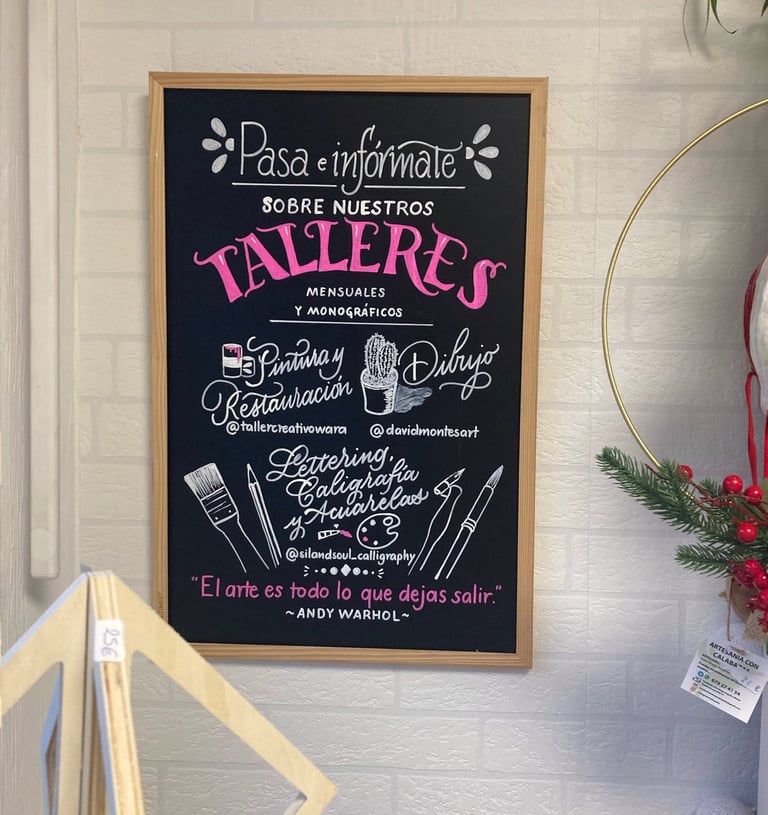 Pasa e infórmate
SOBRE NUESTROS
TALLERES
MENSUALES
Y MONOGRÁFICOS
Pintura y
Restauración
@tallercreativowara
Dibujo
@davidmontesart
Lettering,
Caligrafía
y Acuarelas
@silandsoul_calligraphy
"El arte es todo lo que dejas salir."
~ANDY WARHOL~
25€
ARTESANIA CON